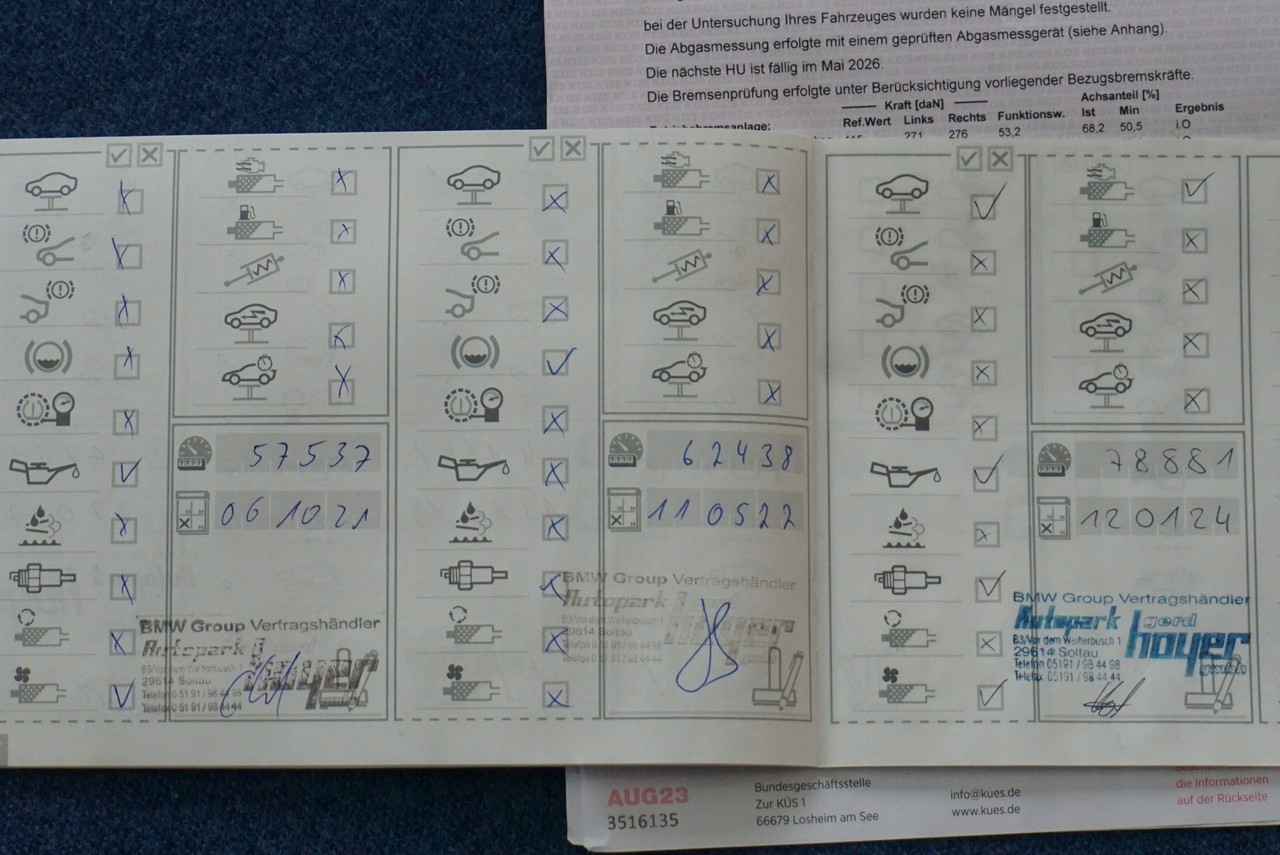 bei der Untersuchung Ihres Fahrzeuges wurden keine Mängel festgestellt.
Die Abgasmessung erfolgte mit einem geprüften Abgasmessgerät (siehe Anhang).
Die nächste HU ist fällig im Mai 2026.
Die Bremsenprüfung erfolgte unter Berücksichtigung vorliegender Bezugsbremskräfte.
Kraft [daN] Achsanteil [%]
Ref.Wert Links Rechts Funktionsw. Ist Min Ergebnis
271 276 53,2 68,2 50,5 i.O
57537
061021
BMW Group Vertragshändler
Autopark
B3/Vor dem Weiherbusch 1
29614 Soltau
Telefon 05191 / 98 44 98
Telefax 05191 / 98 44 44
hoyer
62438
110522
BMW Group Vertragshändler
Autopark
B3/Vor dem Weiherbusch 1
29614 Soltau
78881
120124
BMW Group Vertragshändler
Autopark gerd
hoyer
gmbh
B3/Vor dem Weiherbusch 1
29614 Soltau
Telefon 05191 / 98 44 98
Telefax 05191 / 98 44 44
AUG23
3516135
Bundesgeschäftsstelle
Zur KÜS 1
66679 Losheim am See
info@kues.de
www.kues.de
die Informationen
auf der Rückseite